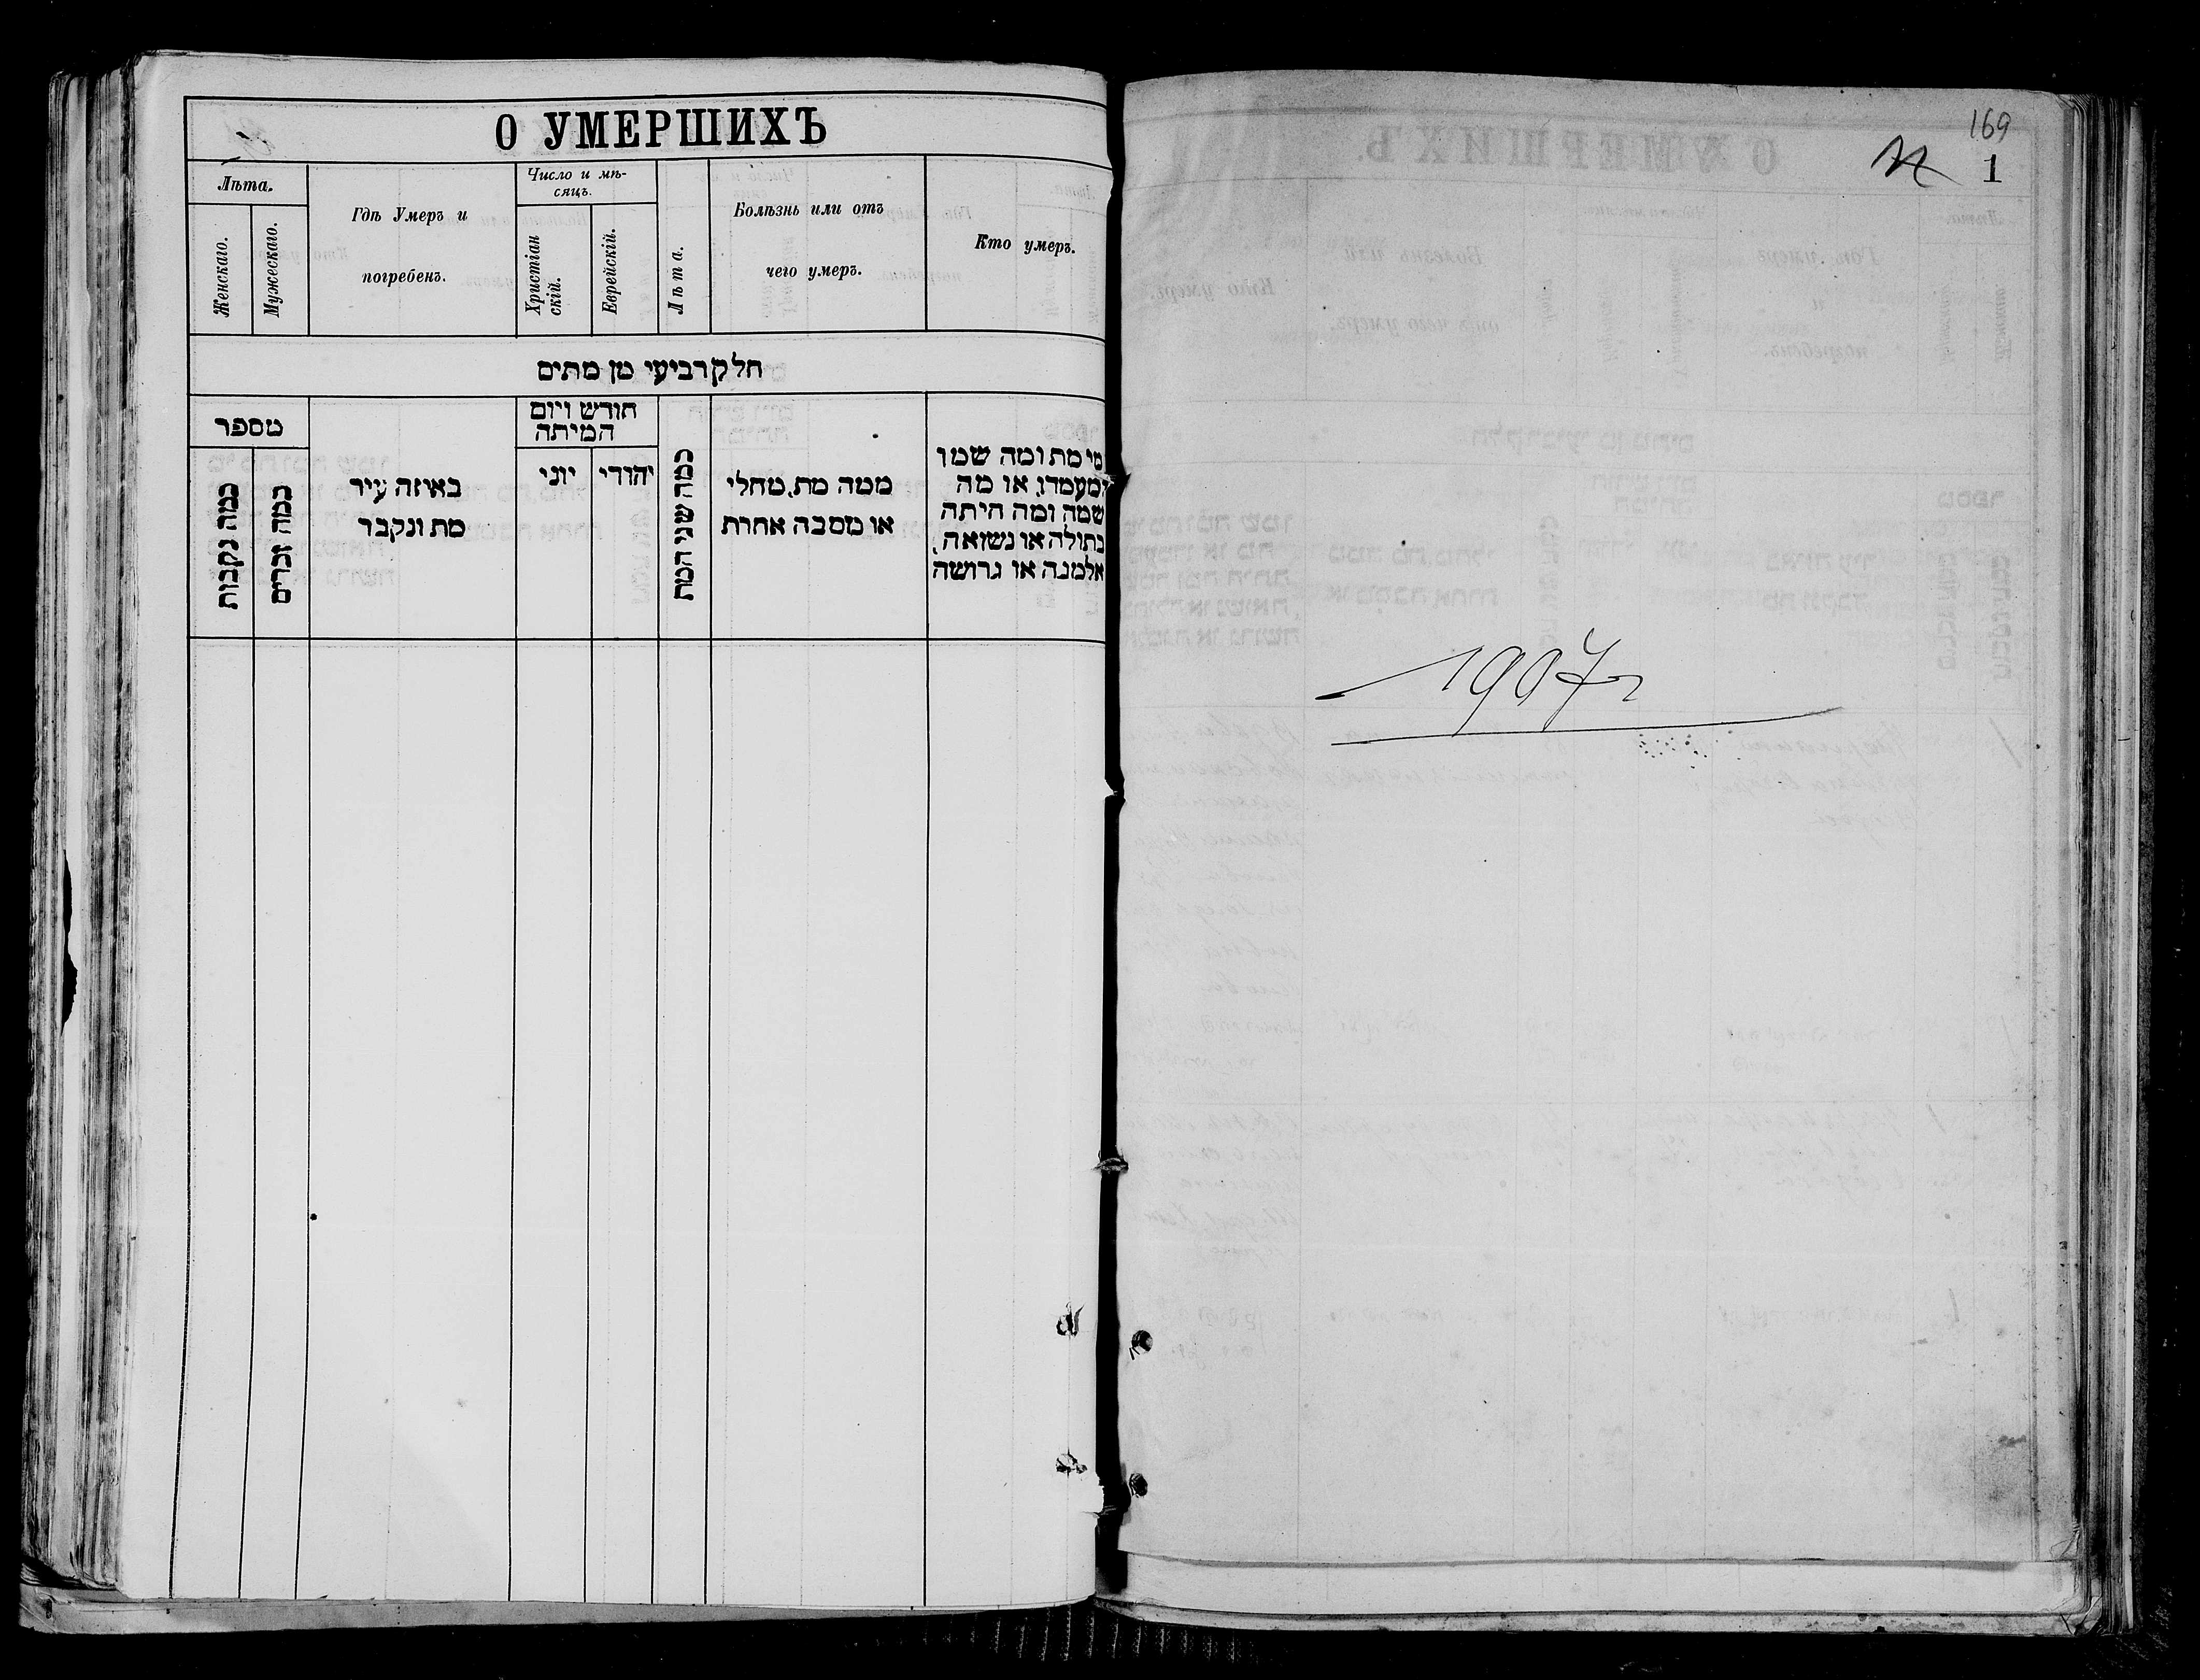 О УМЕРШИХЪ
Лѣта.
Женскаго.
Мужескаго.
Гдѣ Умеръ и
погребенъ.
Число и мѣ-
сяцъ.
Христіан
скій.
Еврейскій.
Лѣта.
Болѣзнь или отъ
чего умеръ.
Кто умеръ.
חלק רביעי מן מתים
מספר
כמה נקבות
כמה זכרים
באיזה עיר
מת ונקבר
חודש ויום
המיתה
יוני
יהודי
כמה שני המת
ממה מת, מחלי
או מסבה אחרת
מי מת ומה שמו
ומעמדו, או מה
שמה ומה היתה
בתולה או נשואה,
אלמנה או גרושה
169
1
1907г